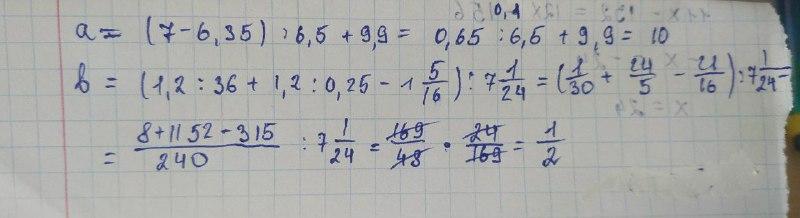 a = (7 - 6,35) : 6,5 + 9,9 = 0,65 : 6,5 + 9,9 = 10
0,1
b = (1,2 : 36 + 1,2 : 0,25 - 1 5/16) : 7 1/24 = (1/30 + 24/5 - 21/16) : 7 1/24 =
= (8 + 1152 - 315)/240 : 7 1/24 = 169/48 · 24/169 = 1/2